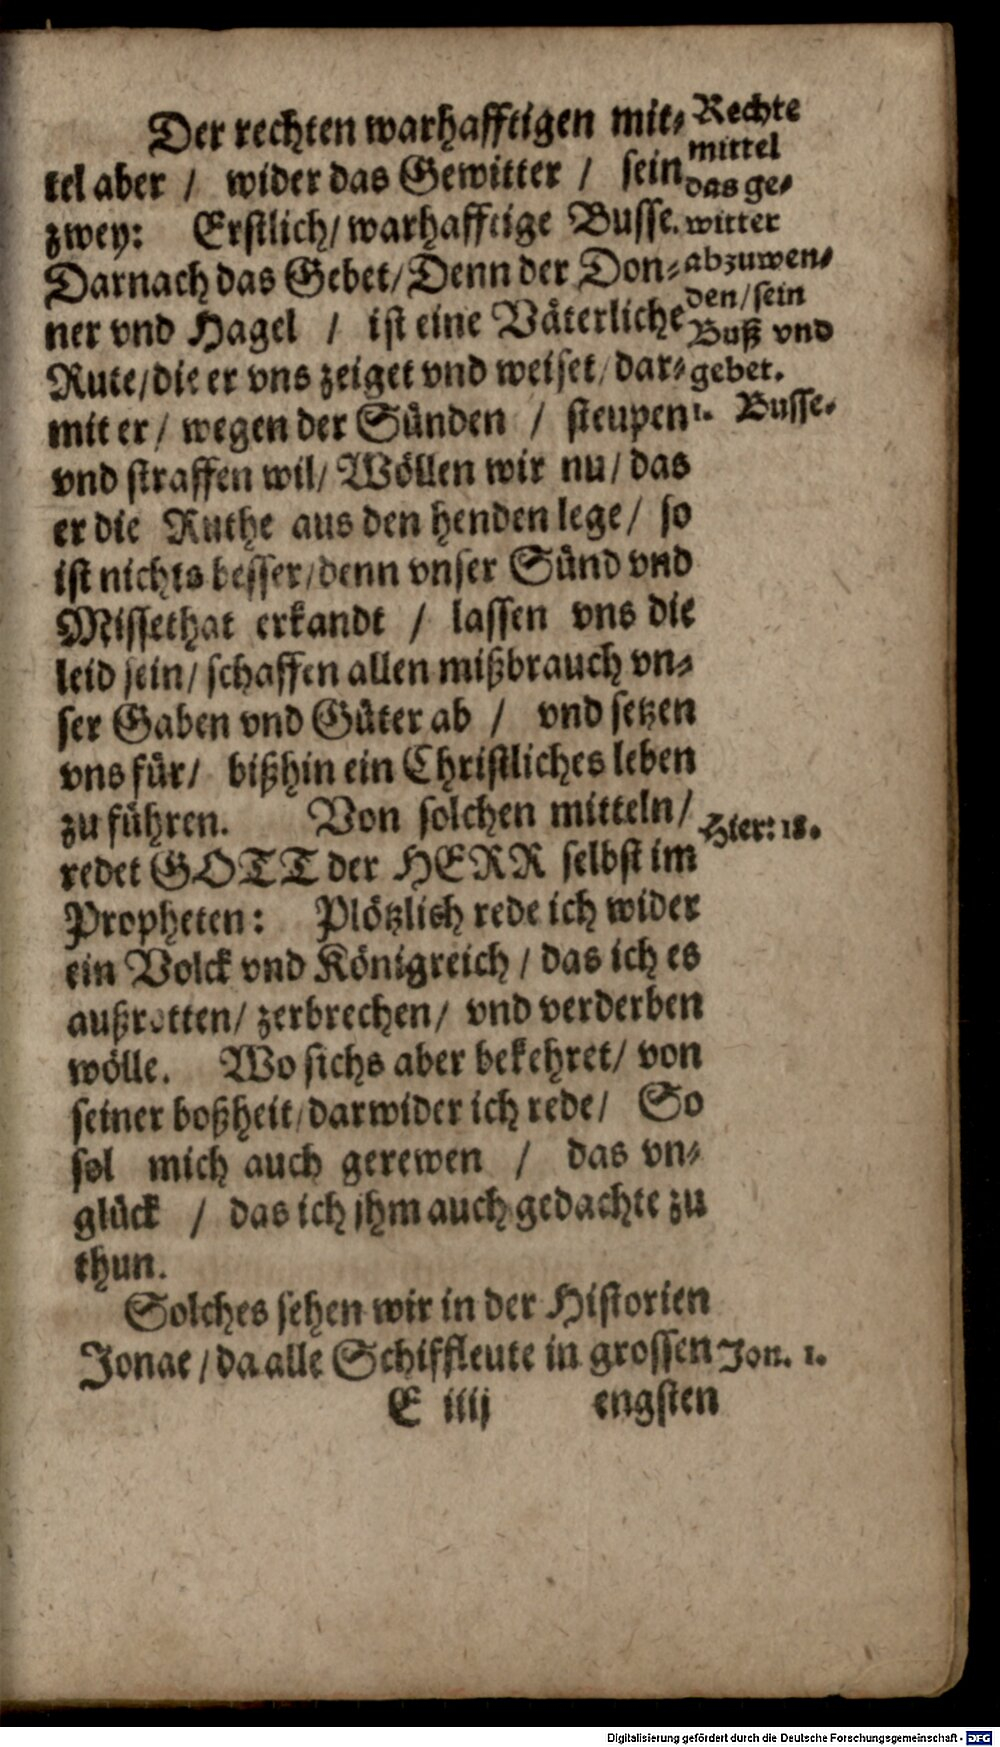 Der rechten warhafftigen mit⸗
tel aber / wider das Gewitter / sein
zwey: Erstlich/ warhafftige Busse.
Darnach das Gebet/ Denn der Don⸗
ner vnd Hagel / ist eine Väterliche
Rute/ die er vns zeiget vnd weiset/ dar⸗
mit er/ wegen der Sünden / steupen
vnd straffen wil/ Wöllen wir nu/ das
er die Ruthe aus den henden lege/ so
ist nichts besser/ denn vnser Sünd vnd
Missethat erkandt / lassen vns die
leid sein/ schaffen allen mißbrauch vn⸗
ser Gaben vnd Güter ab / vnd setzen
vns für/ bißhin ein Christliches leben
zu führen. Von solchen mitteln/
redet GOTT der HERR selbst im
Propheten: Plötzlich rede ich wider
ein Volck vnd Königreich/ das ich es
außrotten/ zerbrechen/ vnd verderben
wölle. Wo sichs aber bekehret/ von
seiner boßheit/ darwider ich rede/ So
sol mich auch gerewen / das vn⸗
glück / das ich jhm auch gedachte zu
thun.
Solches sehen wir in der Historien
Jonae/ da alle Schiffleute in grossen
E iiij engsten
Rechte
mittel
das ge⸗
witter
abzuwen⸗
den/ sein
Buß vnd
gebet.
1. Busse.
Hier: 18.
Jon. 1.
Digitalisierung gefördert durch die Deutsche Forschungsgemeinschaft - DFG